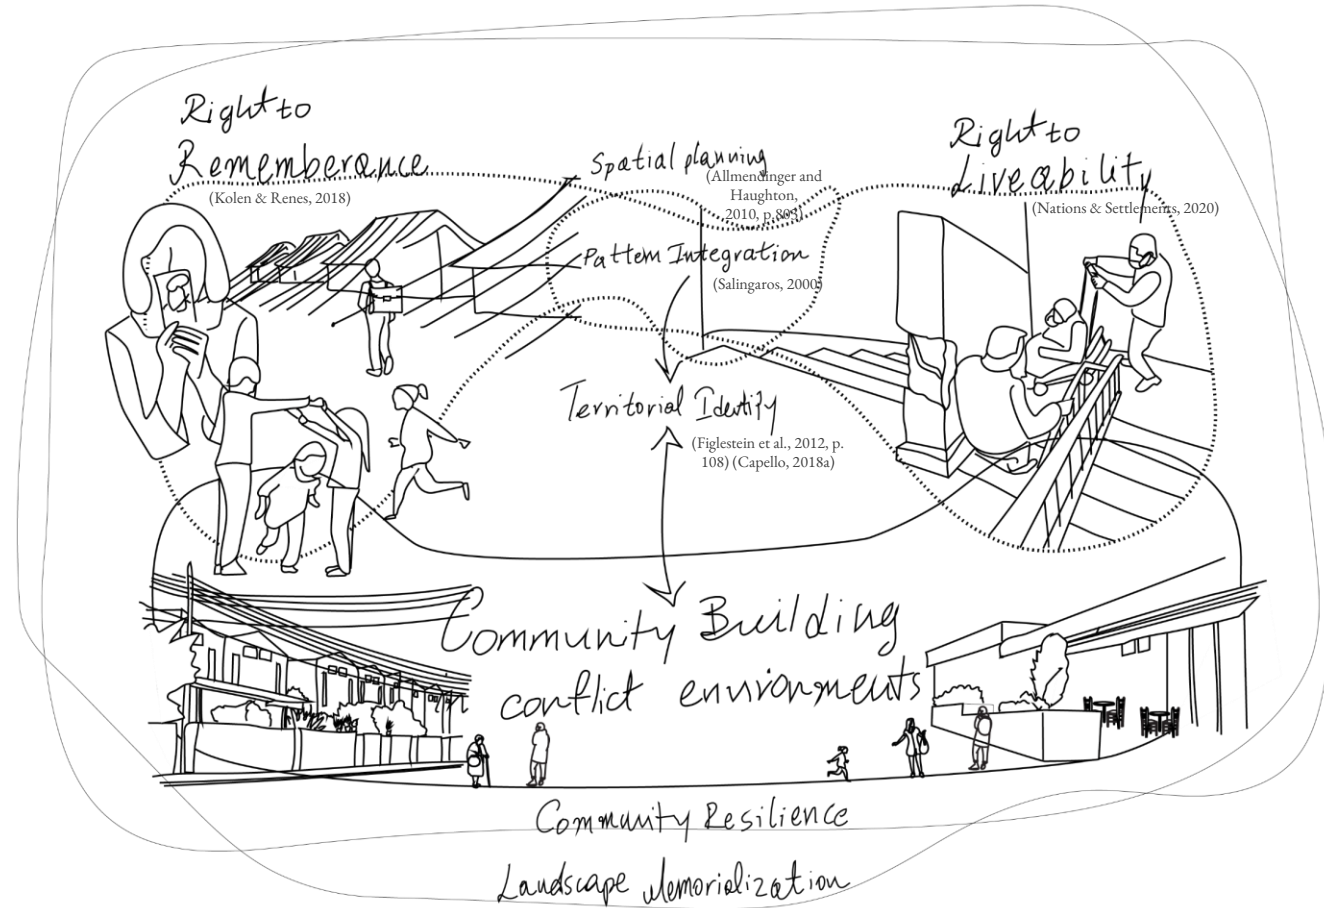 Right to
Rememberance
(Kolen & Renes, 2018)
Spatial planning
(Allmendinger and
Haughton,
2010, p.803)
Pattern Integration
(Salingaros, 2000)
Right to
Liveability
(Nations & Settlements, 2020)
Territorial Identify
(Figlestein et al., 2012, p.
108) (Capello, 2018a)
Community Building
in conflict environments
Community Resilience
Landscape Memorialization